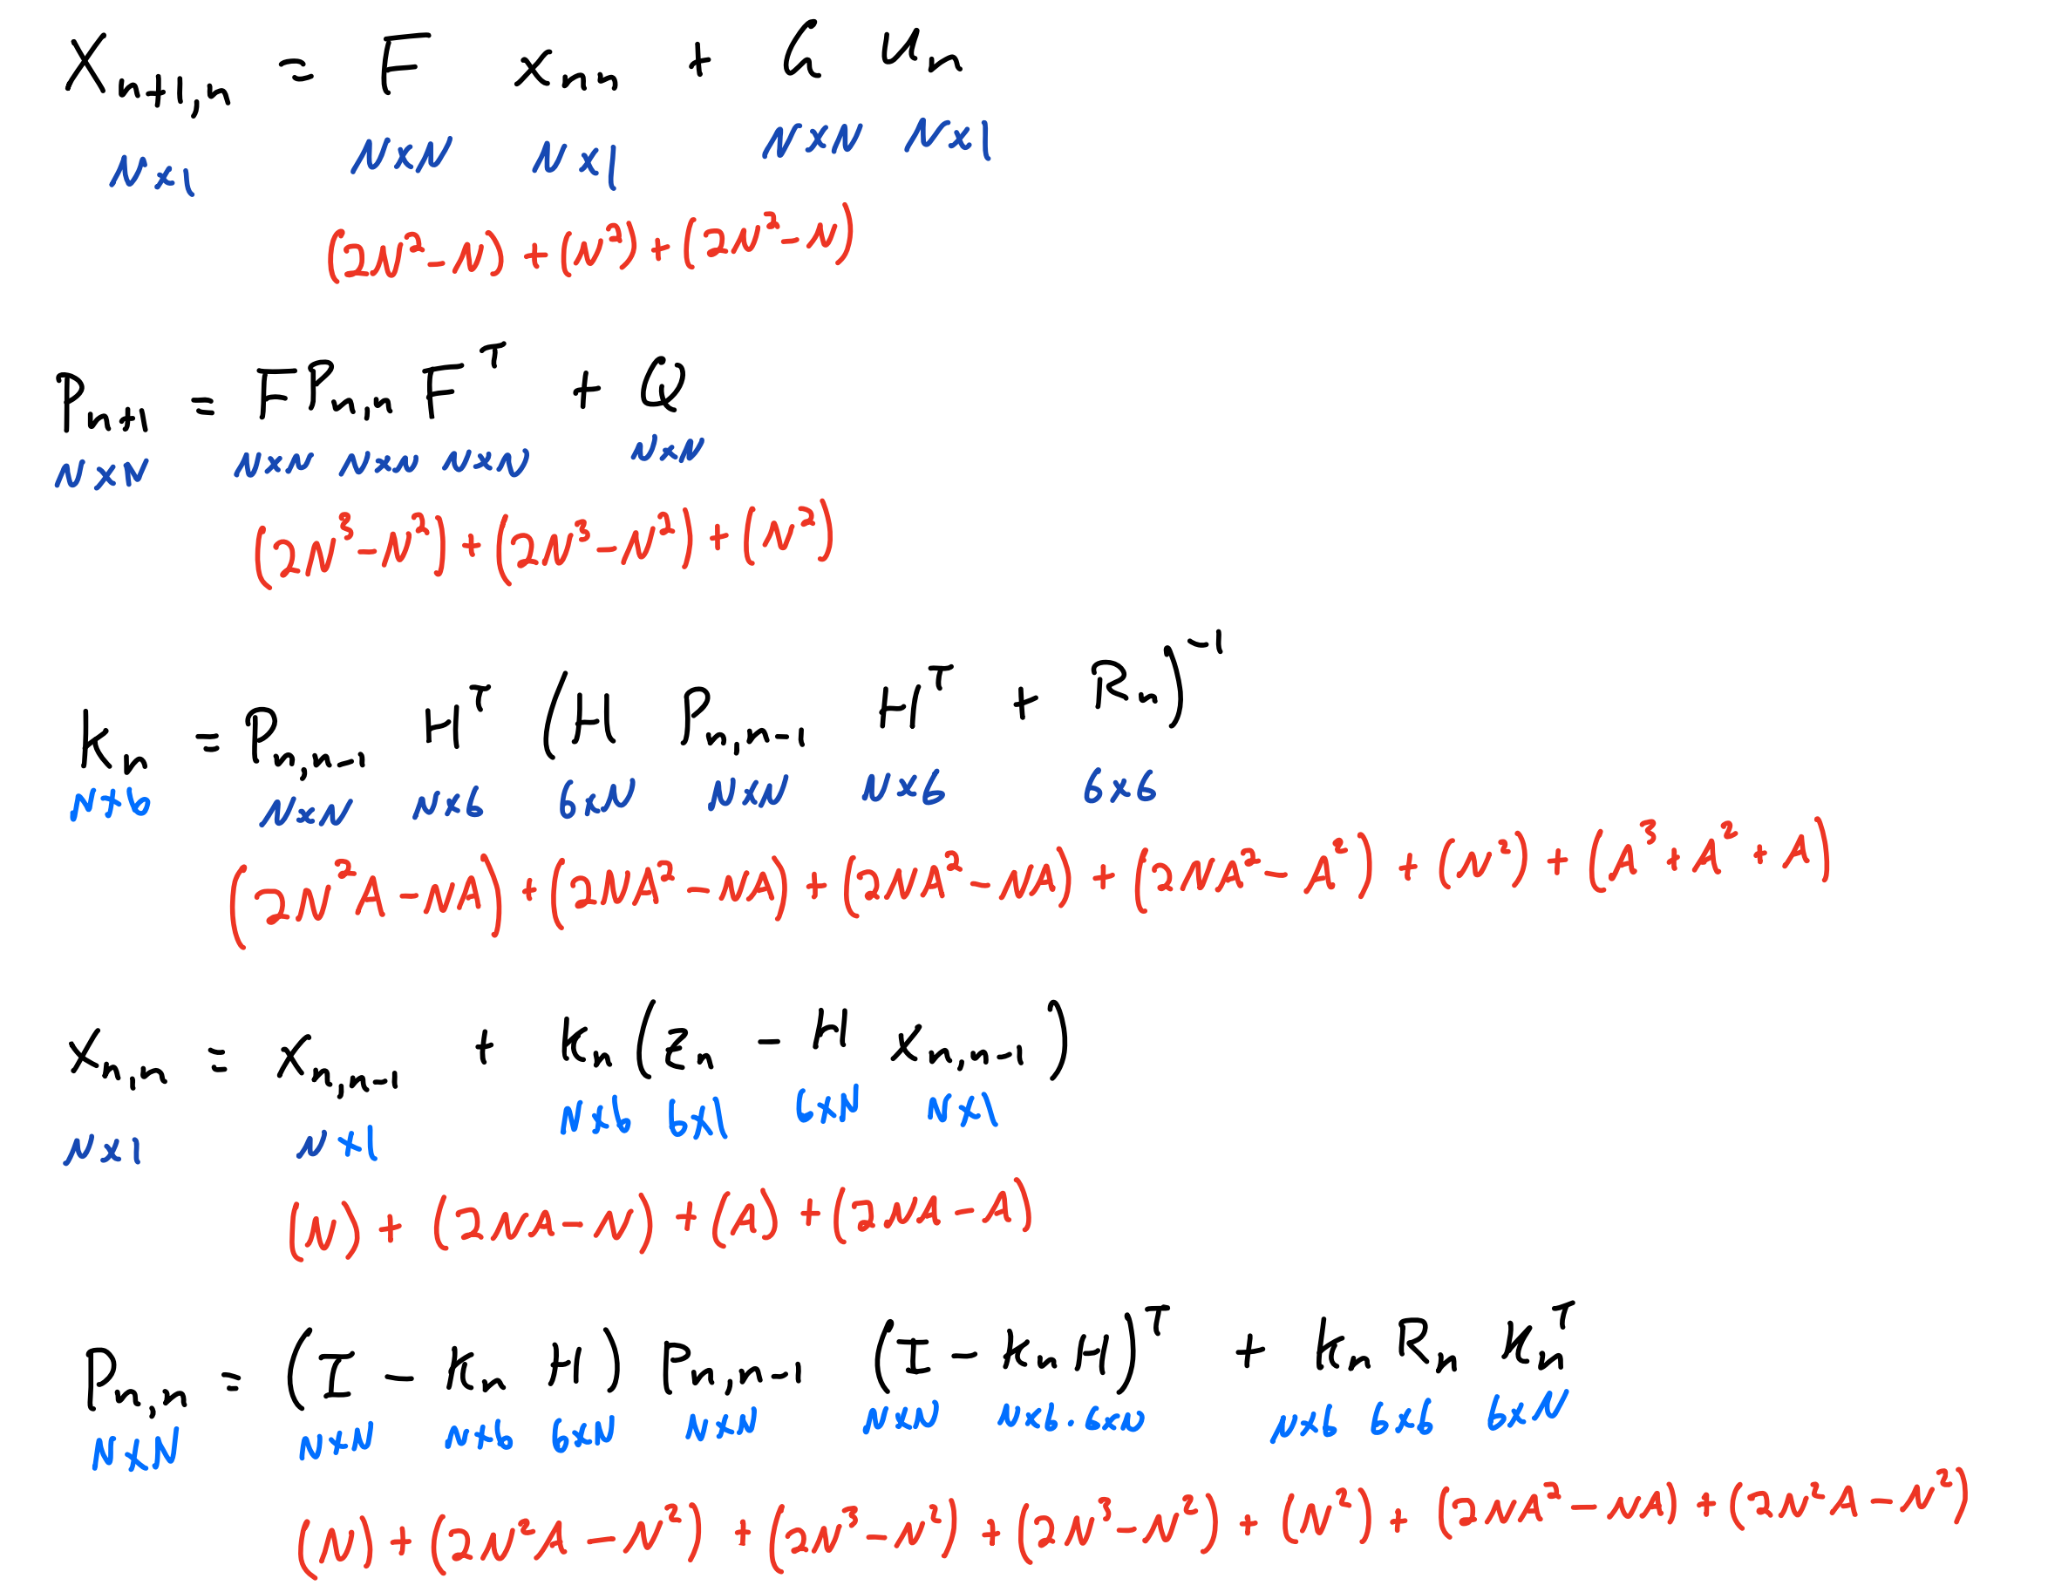 X_{n+1,n} = F x_{nn} + G u_n
N×1 N×N N×1 N×N N×1
(2N²-N) + (N²) + (2N²-N)
P_{n+1} = F P_{n,n} F^T + Q
N×N N×N N×N N×N N×N
(2N³-N²) + (2N³-N²) + (N²)
K_n = P_{n,n-1} H^T (H P_{n,n-1} H^T + R_n)^{-1}
N×6 N×N N×6 6×N N×N N×6 6×6
(2N²A-NA) + (2NA²-NA) + (2NA²-NA) + (2NA²-A²) + (N²) + (A³+A²+A)
x_{n,n} = x_{n,n-1} + K_n (z_n - H x_{n,n-1})
N×1 N×1 N×6 6×1 6×N N×1
(N) + (2NA-N) + (A) + (2NA-A)
P_{n,n} = (I - K_n H) P_{n,n-1} (I - K_n H)^T + K_n R_n K_n^T
N×N N×N N×6 6×N N×N N×N N×6·6×N N×6 6×6 6×N
(N) + (2N²A-N²) + (2N³-N²) + (2N³-N²) + (N²) + (2NA²-NA) + (2N²A-N²)